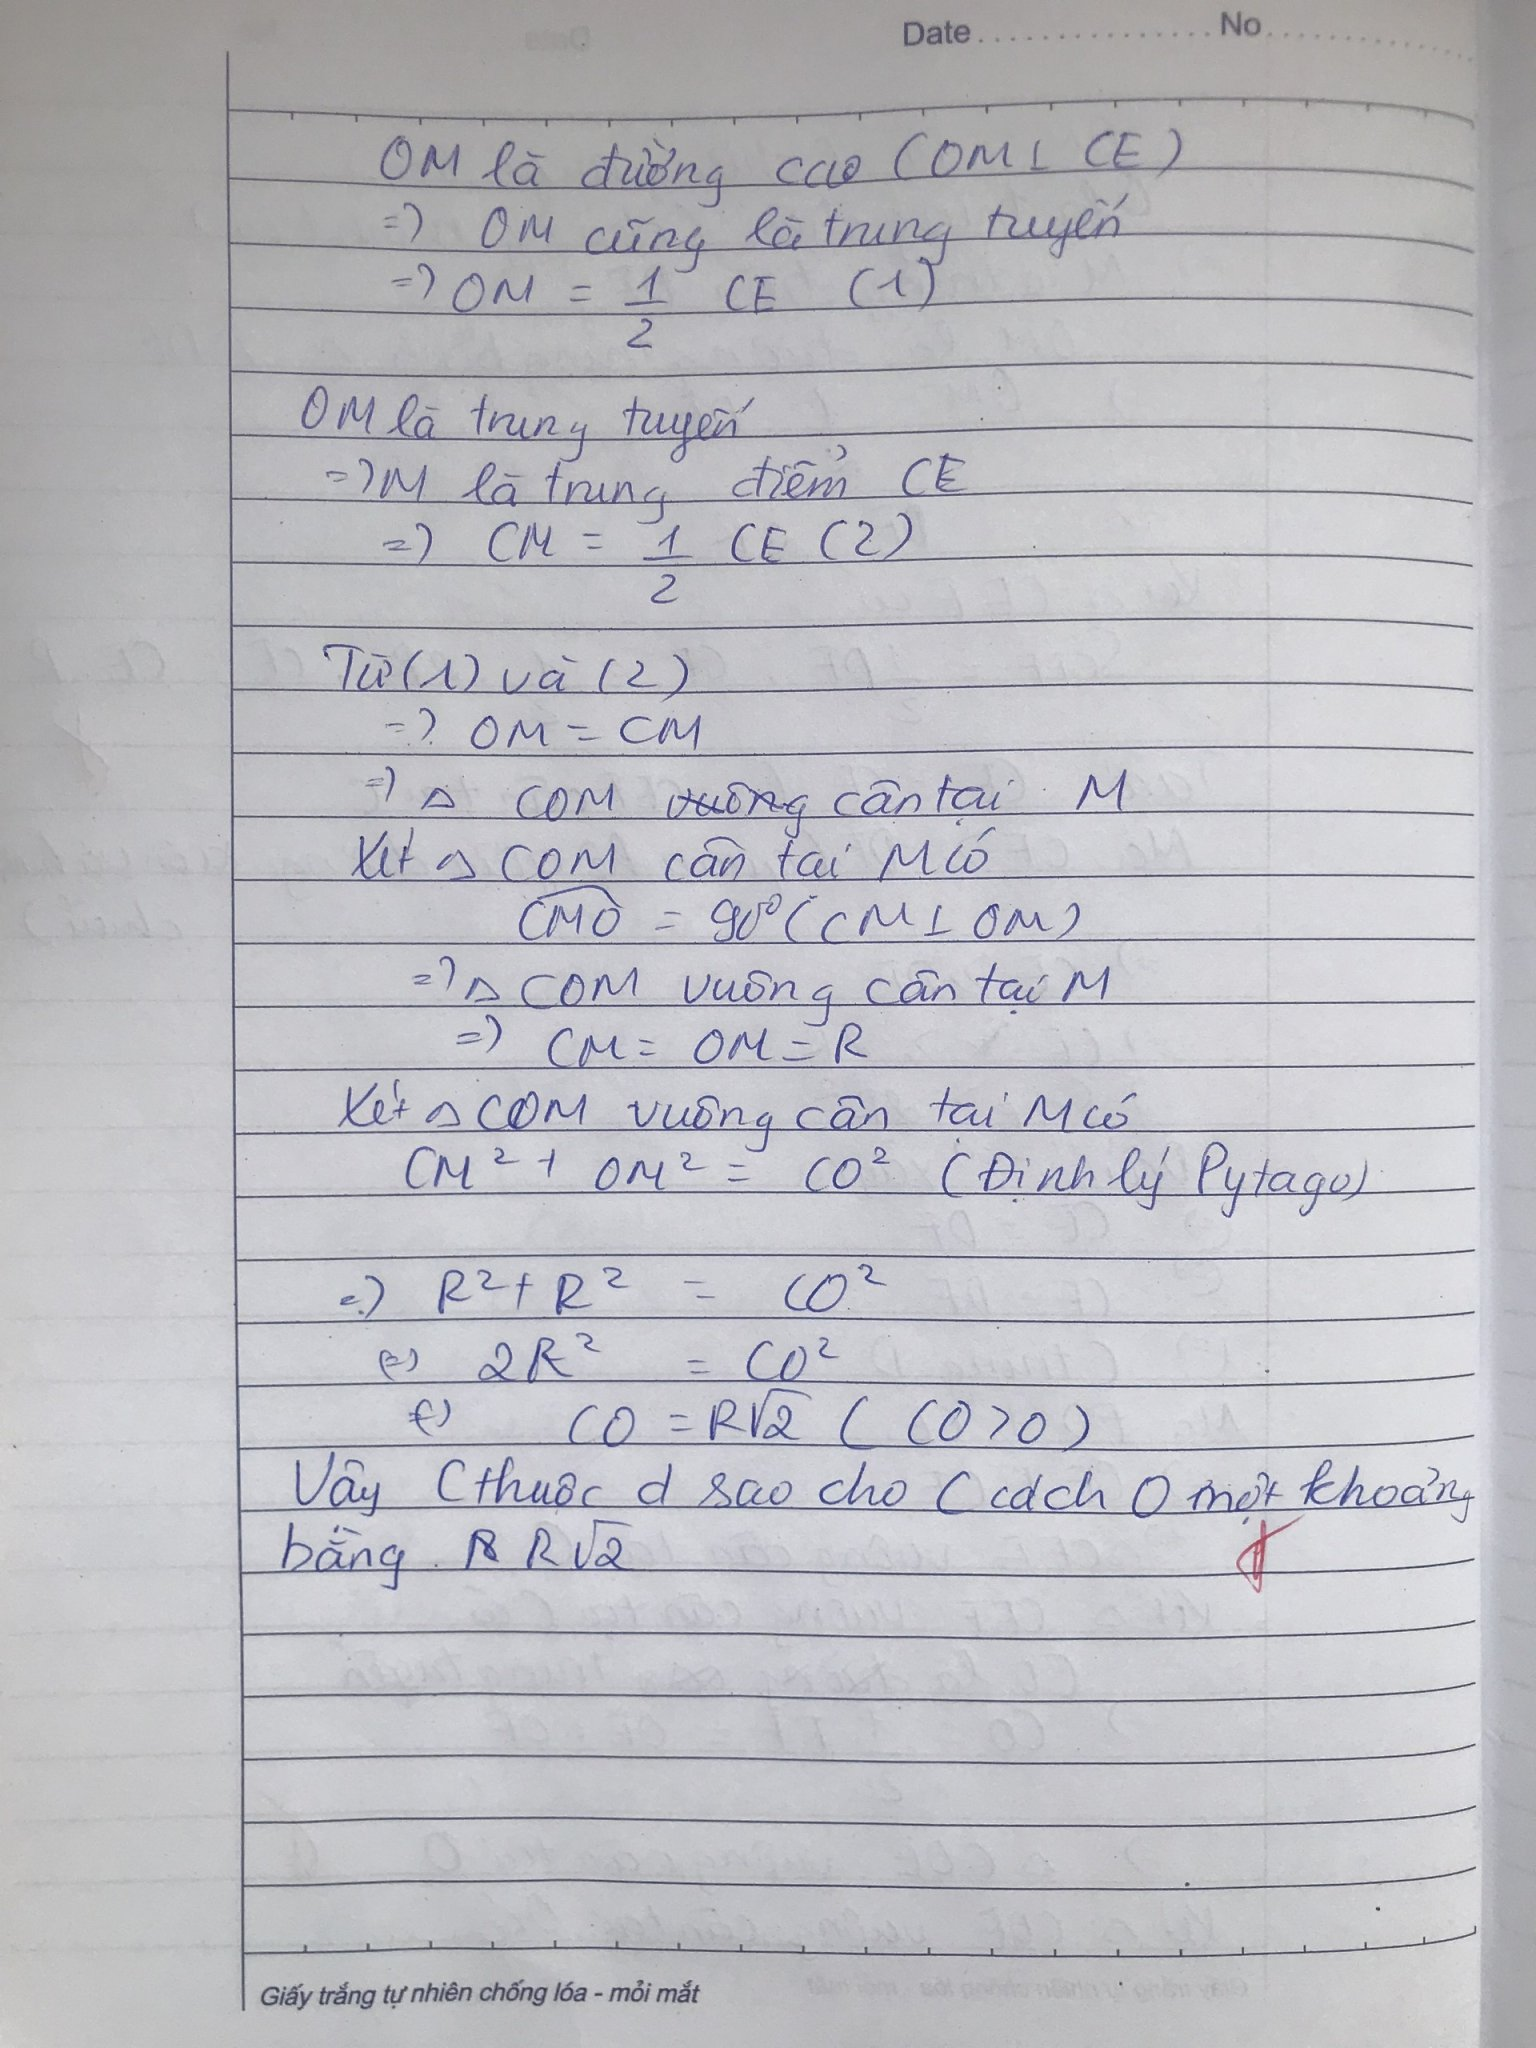 Date................No................
OM là đường cao (OM ⊥ CE)
=> OM cũng là trung tuyến
=> OM = 1/2 CE (1)
OM là trung tuyến
=> M là trung điểm CE
=> CM = 1/2 CE (2)
Từ (1) và (2)
=> OM = CM
=> △ COM vuông cân tại M
Xét △ COM cân tai M có
CMO = 90° (CM ⊥ OM)
=> △ COM vuông cân tại M
=> CM = OM = R
Xét △ COM vuông cân tại M có
CM² + OM² = CO² (Định lý Pytago)
=> R² + R² = CO²
<=> 2R² = CO²
<=> CO = R√2 (CO > 0)
Vây C thuộc d sao cho C cách O một khoảng
bằng R√2
Giấy trắng tự nhiên chống lóa - mỏi mắt